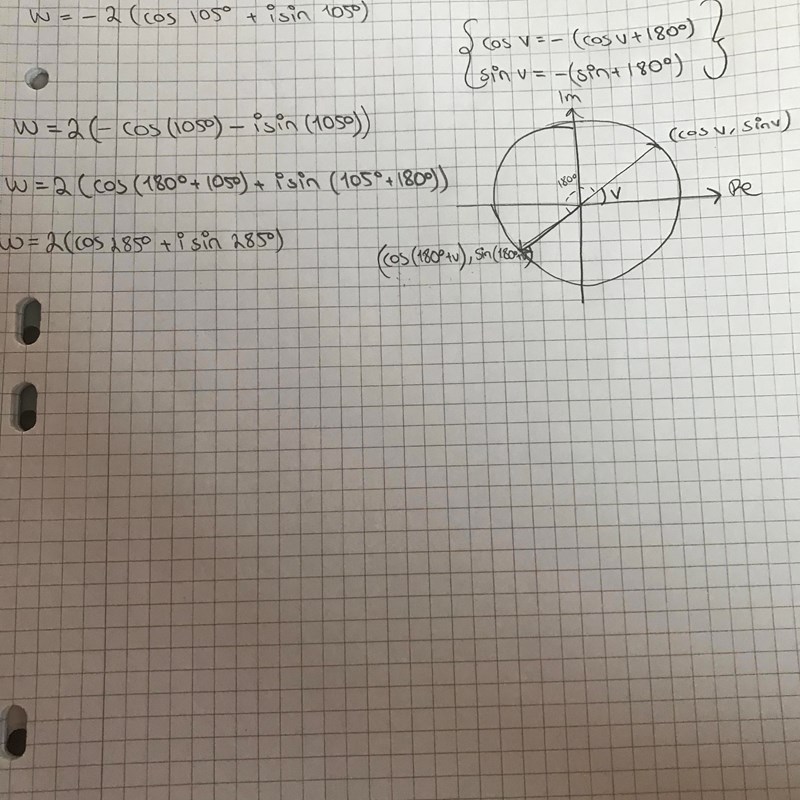 w = -2 (cos 105° + i sin 105°)
{ cos v = - (cos v + 180°) }
{ sin v = - (sin + 180°) }
w = 2 (- cos (105°) - i sin (105°))
w = 2 (cos (180° + 105°) + i sin (105° + 180°))
w = 2 (cos 285° + i sin 285°)
Im
(cos v, sin v)
180°
v
Re
(cos (180° + v), sin (180°